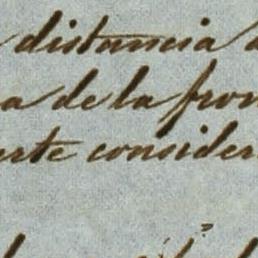 distancia
a de la fron
erte consider